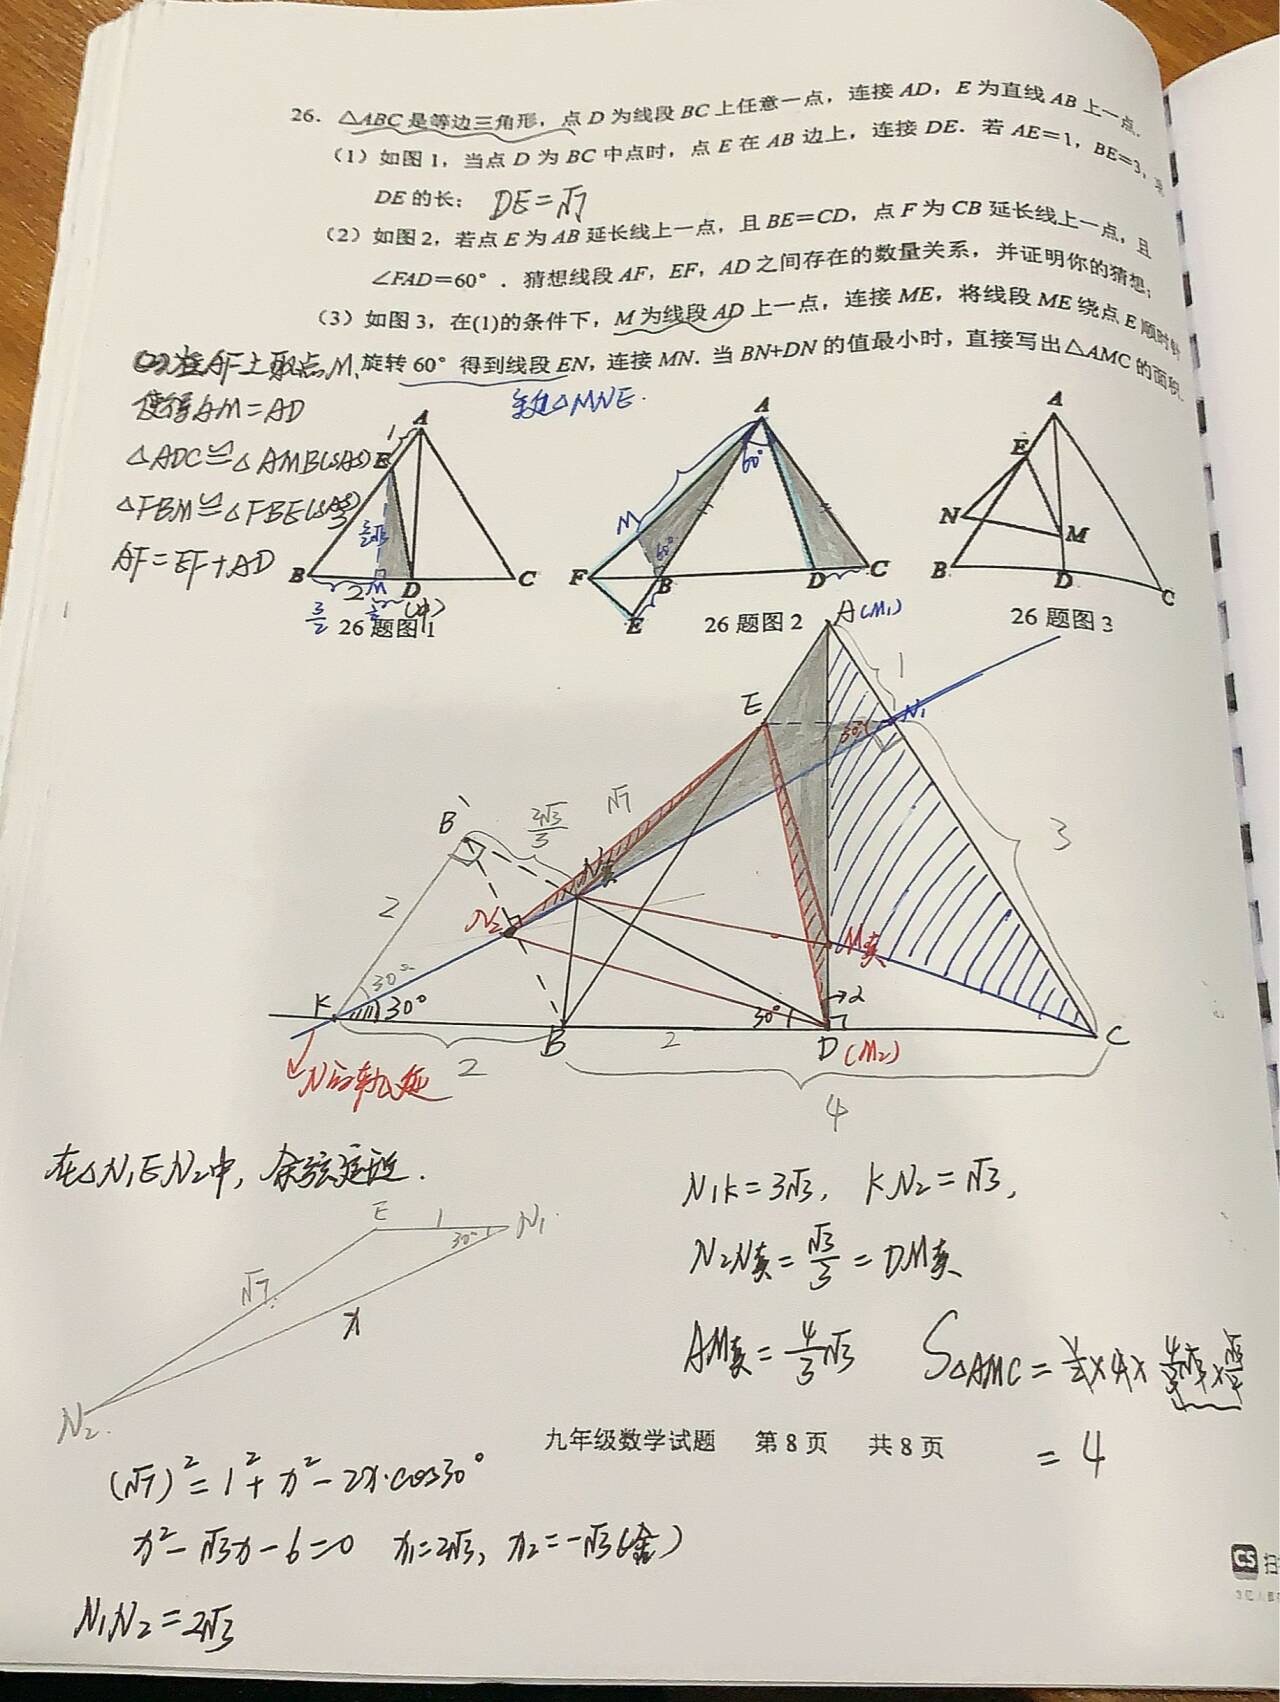 26. △ABC 是等边三角形，点 D 为线段 BC 上任意一点，连接 AD，E 为直线 AB 上一点.
(1) 如图 1，当点 D 为 BC 中点时，点 E 在 AB 边上，连接 DE. 若 AE=1，BE=3，
DE 的长； DE=√7
(2) 如图 2，若点 E 为 AB 延长线上一点，且 BE=CD，点 F 为 CB 延长线上一点，且
∠FAD=60°. 猜想线段 AF，EF，AD 之间存在的数量关系，并证明你的猜想；
(3) 如图 3，在(1)的条件下，M 为线段 AD 上一点，连接 ME，将线段 ME 绕点 E 顺时针
旋转 60° 得到线段 EN，连接 MN. 当 BN+DN 的值最小时，直接写出△AMC 的面积.
(2)在AF上取点M,
使得AM=AD
△ADC≌△AMB(SAS)
△FBM≌△FBE(SAS)
AF=EF+AD
等边△MNE.
A 1 E B 2 M D C 3/2 (中)
26 题图 1
A 60° M 60° F B D C E
26 题图 2
A E N M B D C
26 题图 3
A(M₁)
1
E N₁ 30°
√7 3
B' 2√3/3
2 N₂ M真
K 30° 30° 30° 2
B 2 D (M₂) C
2
4
N的轨迹
在△N₁EN₂中, 余弦定理.
E 1 30° N₁
√7 x
N₂
(√7)²=1²+x²-2x·cos30°
x²-√3x-6=0 x₁=2√3, x₂=-√3(舍)
N₁N₂=2√3
N₁K=3√3, KN₂=√3,
N₂N真=√3/3=DM真
AM真=4/3√3 S△AMC=
=4
九年级数学试题 第 8 页 共 8 页
CS 扫